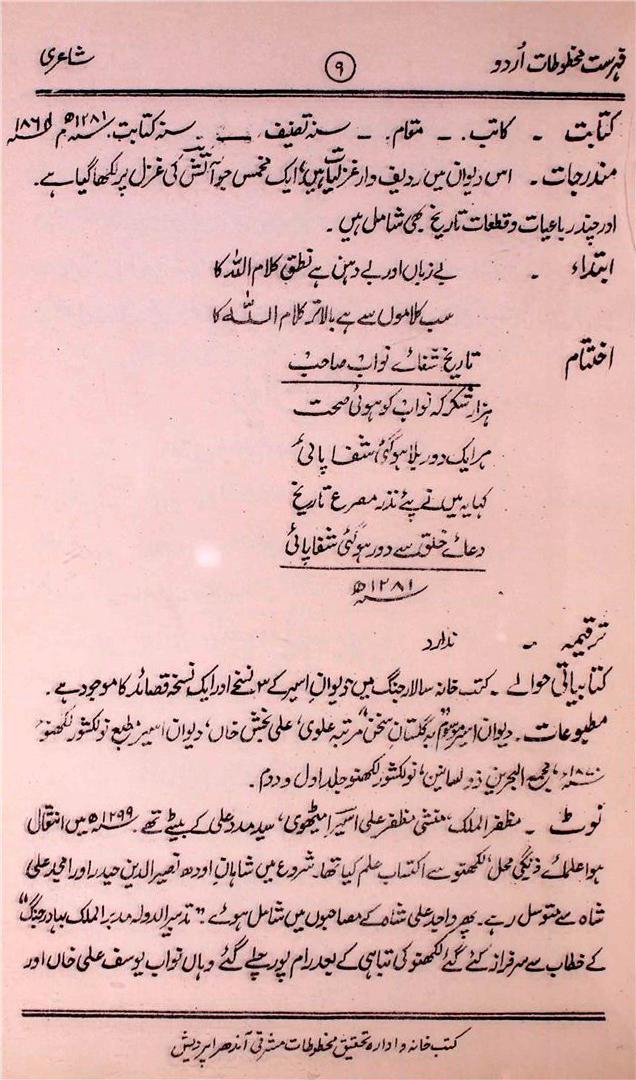 فہرست مخطوطات اُردو ۹ شاعری
کتابت ۔ کاتب ۔ ۔ مقام ۔ ۔ سنہ تصنیف ۔ سنہ کتابت ۱۲۸۱ھ م ۱۸۶۵
مندرجات ۔ اس دیوان میں ردیف وار غزلیات ہیں، ایک مخمس جو آتش کی غزل پر لکھا گیا ہے۔
اور چند رباعیات و قطعات تاریخ بھی شامل ہیں ۔
ابتداء ۔ بے زباں اور بے دہن ہے نطق کلام اللہ کا
سب کلاموں سے ہے بالاتر کلام اللہ کا
اختتام تاریخ شفائے نواب صاحب
ہزار شکر کہ نواب کو ہوئی صحت
ہر ایک دور بلا ہوگئی شفا پائی
کہا یہ میں نے پئے نذر مصرع تاریخ
دعائے خلق سے دور ہوگئی شفا پائی
۱۲۸۱ھ
ترقیمہ ۔ ندارد
کتابیاتی حوالے ۔ کتب خانہ سالار جنگ میں دیوان اسیر کے ۳ نسخے اور ایک نسخہ قصائد کا موجود ہے ۔
مطبوعات ۔ دیوان اسیر موسوم بہ گلستان سخن مرتبہ علوی، علی بخش خاں، دیوان اسیر مطبع نولکشور لکھنو
۱۸۷۰ء، مجمع البحرین ذولسانین، نولکشور لکھنو جلد اول و دوم ۔
نوٹ ۔ مظفر الملک، منشی مظفر علی اسیر امیٹھوی، سید مدد علی کے بیٹے تھے ۔ ۱۲۹۹ھ میں انتقال
ہوا علمائے فرنگی محل، لکھنو سے اکتساب علم کیا تھا۔ شروع میں شاہان اودھ نصیر الدین حیدر اور امجد علی
شاہ سے متوسل رہے ۔ پھر واجد علی شاہ کے مصاحبوں میں شامل ہوئے ۔ "تدبیر الدولہ مدبر الملک بہادر جنگ"
کے خطاب سے سرفراز کئے گئے لکھنو کی تباہی کے بعد رام پور چلے گئے وہاں نواب یوسف علی خاں اور
کتب خانہ و ادارہ تحقیق مخطوطات مشرقی آندھرا پردیش